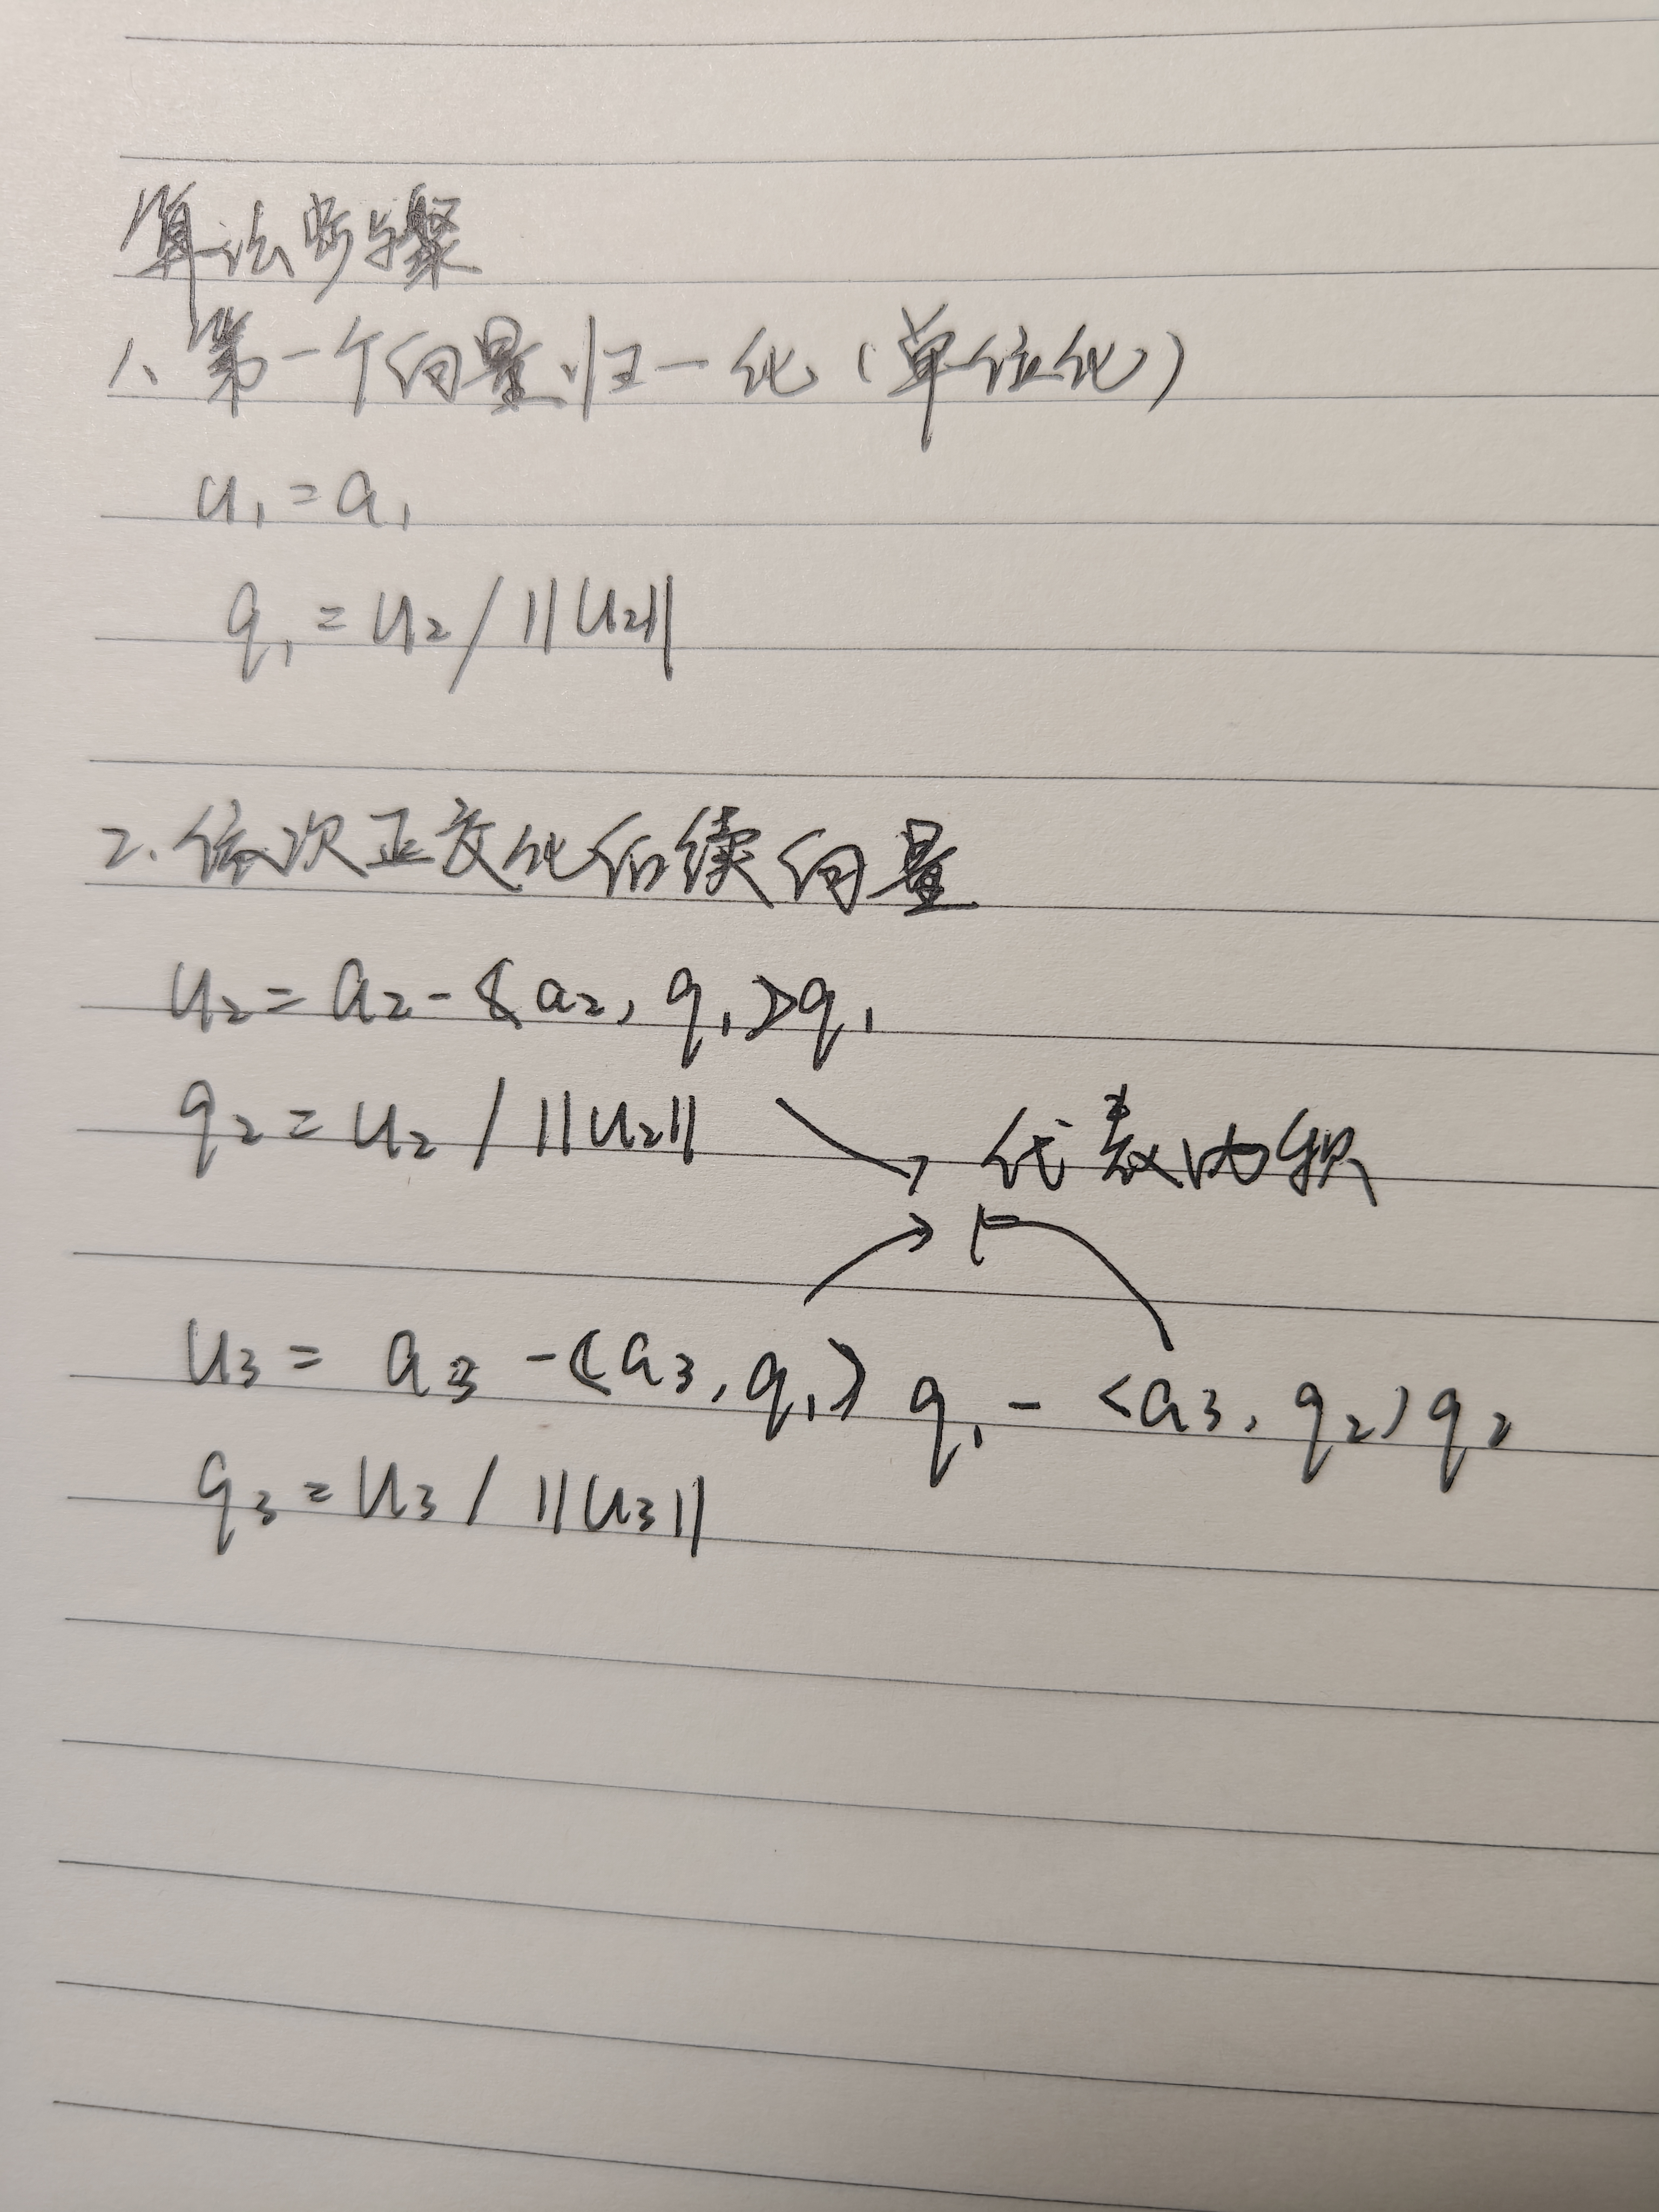 算法步骤
1、第一个向量归一化(单位化)
u₁=a₁
q₁=u₂/||u₂||
2.依次正交化后续向量
u₂=a₂-<a₂,q₁>q₁
q₂=u₂/||u₂||
代表内积
u₃=a₃-<a₃,q₁>q₁-<a₃,q₂>q₂
q₃=u₃/||u₃||